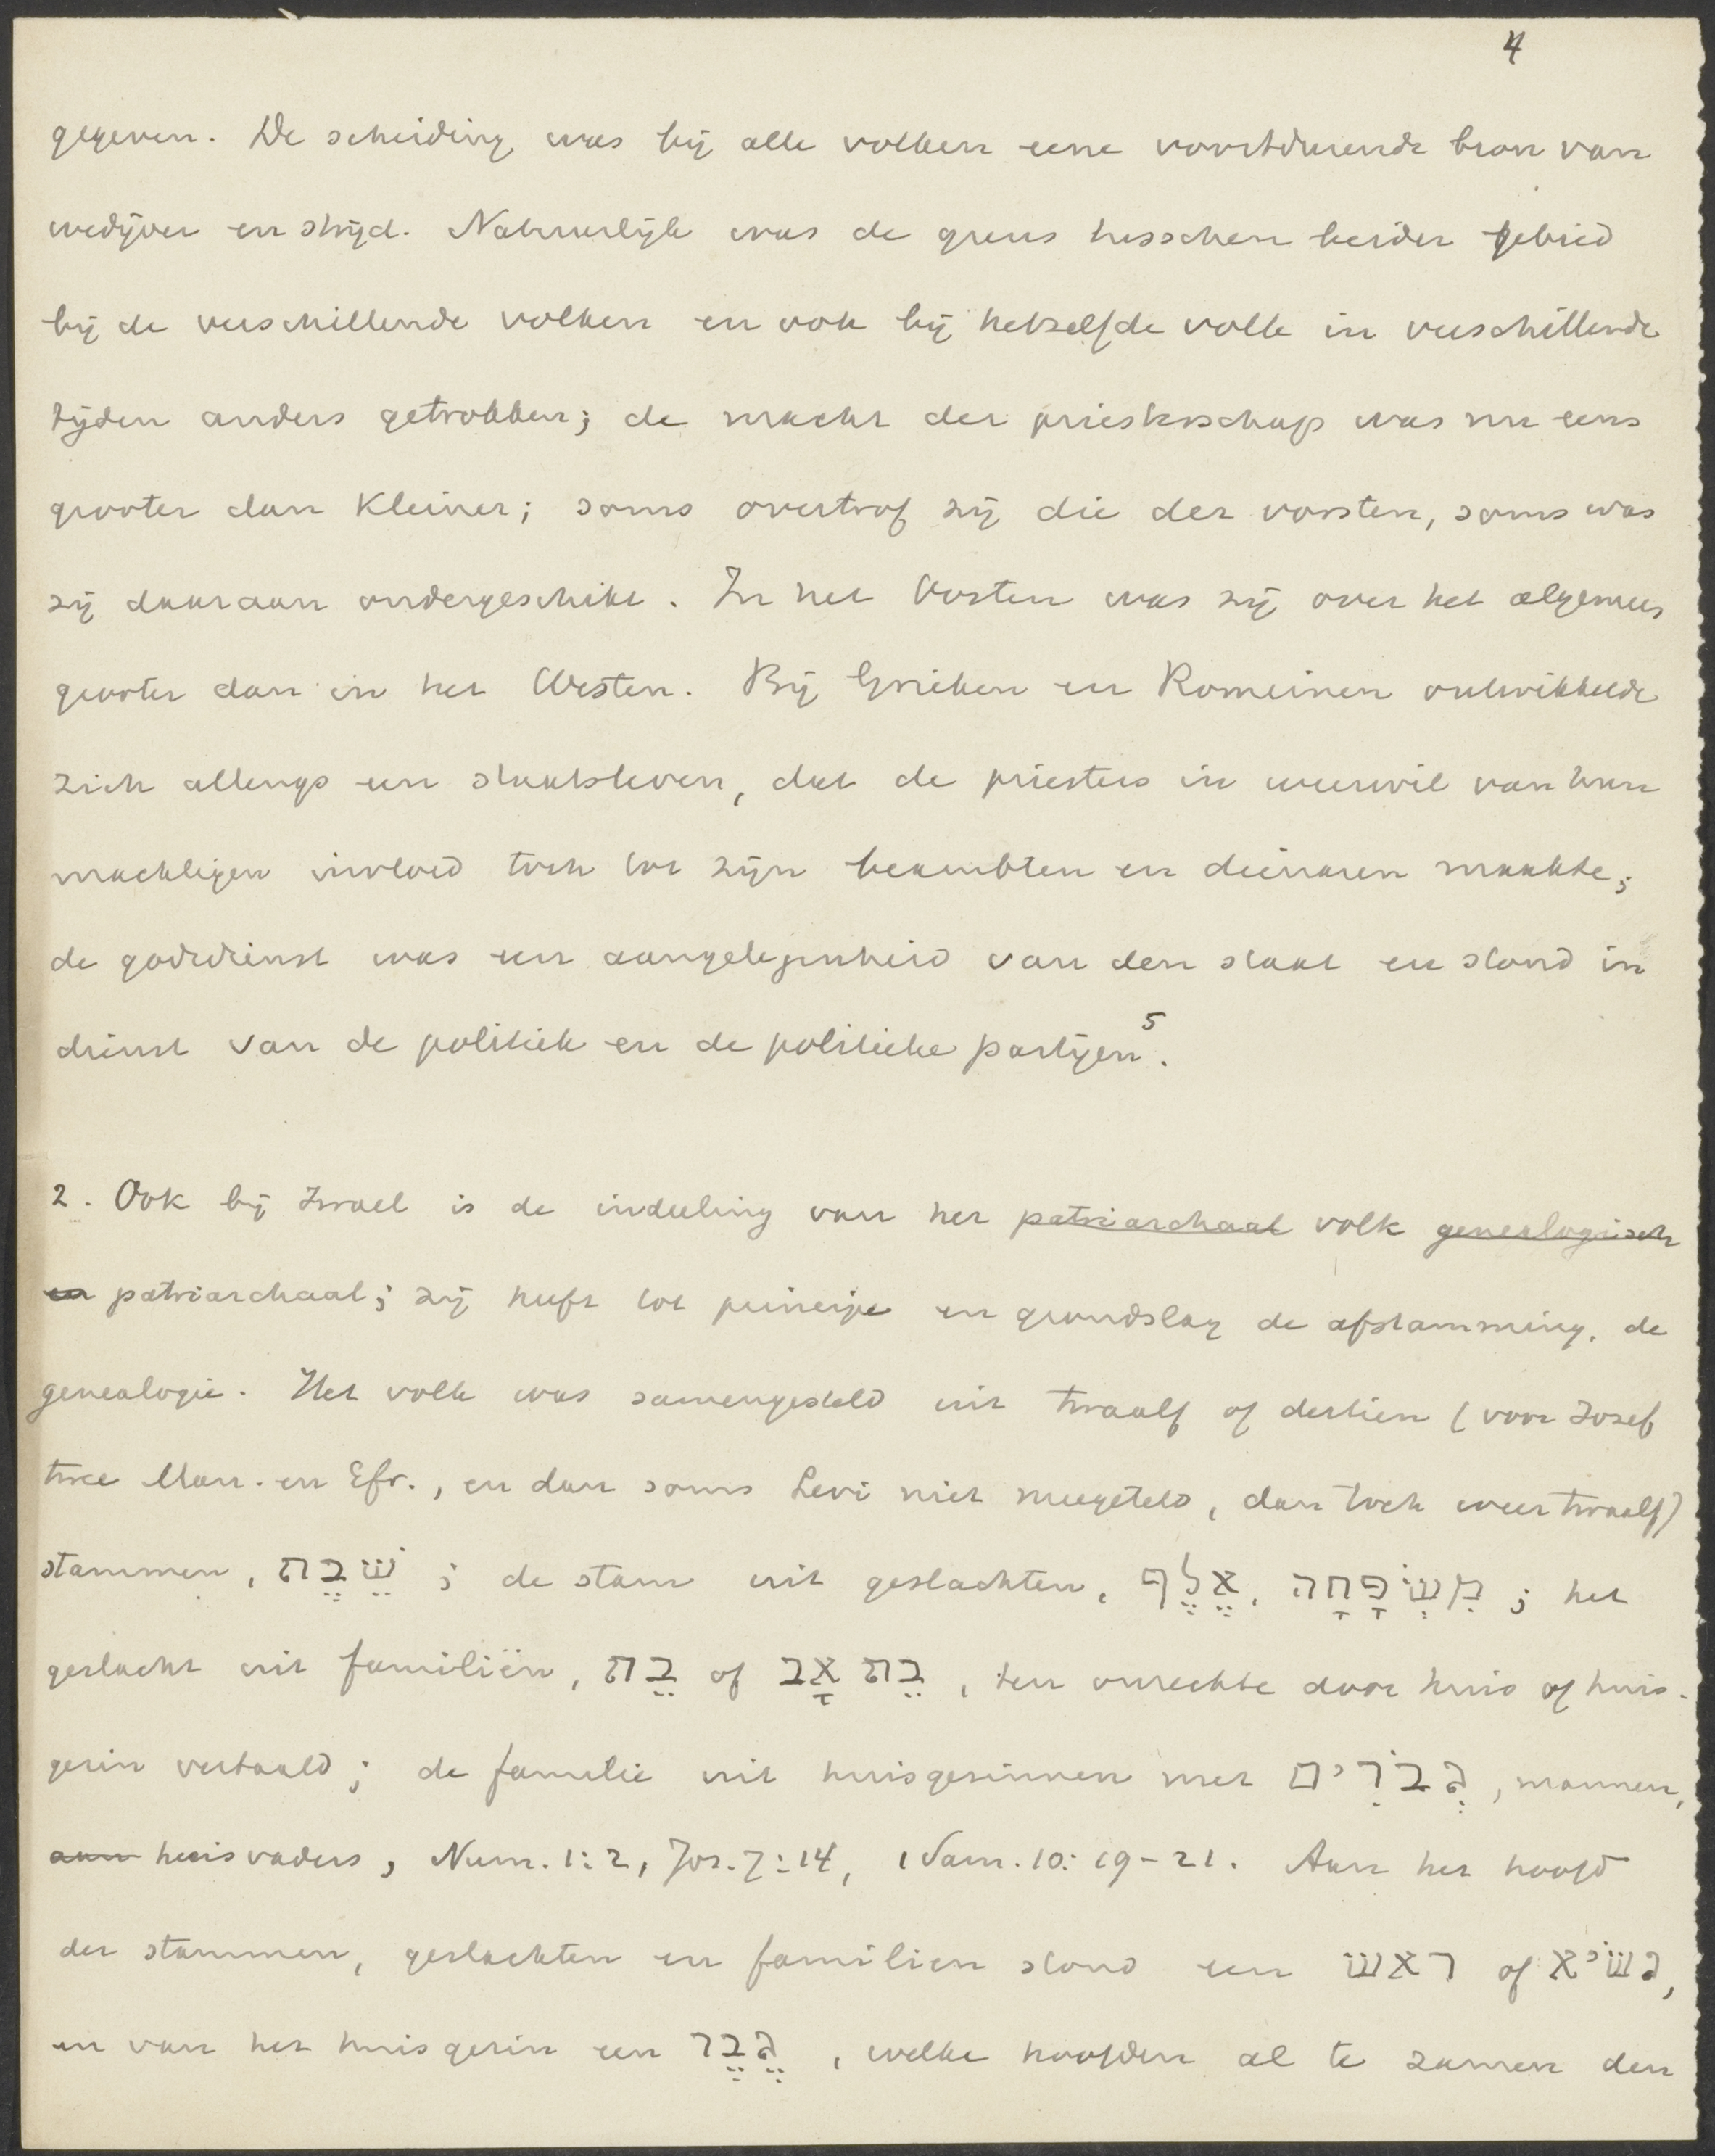 4
gegeven. De scheiding was bij alle volken eene voortdurende bron van
wedijver en strijd. Natuurlijk was de grens tusschen beider gebied
bij de verschillende volken en ook bij hetzelfde volk in verschillende
tijden anders getrokken; de macht der priesterschap was nu eens
grooter dan kleiner; soms overtrof zij die der vorsten, soms was
zij daaraan ondergeschikt. In het Oosten was zij over het algemeen
grooter dan in het Westen. Bij Grieken en Romeinen ontwikkelde
zich allengs een staatsleven, dat de priesters in weerwil van hun
machtigen invloed toch tot zijn beambten en dienaren maakte;
de godsdienst was een aangelegenheid van den staat en stond in
dienst van de politiek en de politieke partijen⁵.
2. Ook bij Israel is de indeeling van het patriarchaal volk genealogisch
en patriarchaal; zij heeft tot principe en grondslag de afstamming, de
genealogie. Het volk was samengesteld uit twaalf of dertien (voor Jozef
twee Man. en Efr., en dan soms Levi niet meegeteld, dan toch weer twaalf)
stammen, שֵׁבֶת ; de stam uit geslachten, אֶלֶף, מִשְׁפָּחָה ; het
geslacht uit familiën, בֵת of בֵת אָב , ten onrechte door huis of huis-
gezin vertaald; de familie uit huisgezinnen met גְבֹרִים, mannen,
aan huisvaders, Num. 1:2, Joz. 7:14, 1 Sam. 10:19-21. Aan het hoofd
der stammen, geslachten en familien stond een ראש of נשיא,
en van het huisgezin een גֶבֶר , welke hoofden al te zamen den